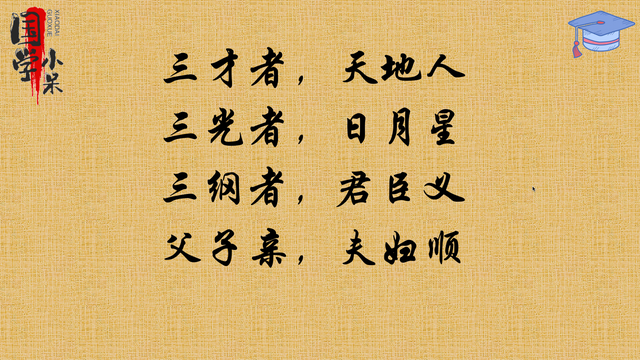 国学
小呆
XIAODAI
GUOXUE
三才者，天地人
三光者，日月星
三纲者，君臣义
父子亲，夫妇顺